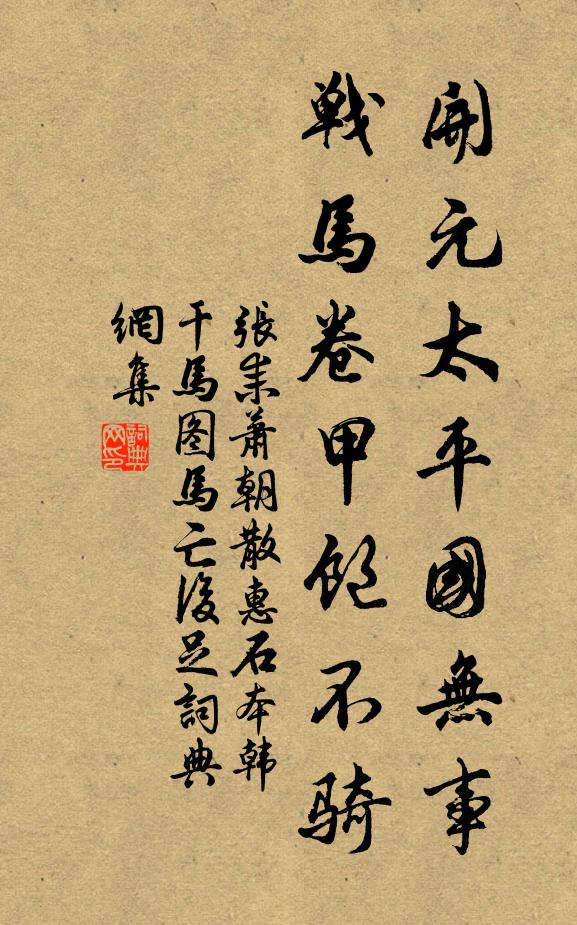 開元太平國無事
戰馬卷甲飽不騎
張耒蕭朝散惠石本韓
干馬圖馬亡後足詞典
網集
詞典
网印